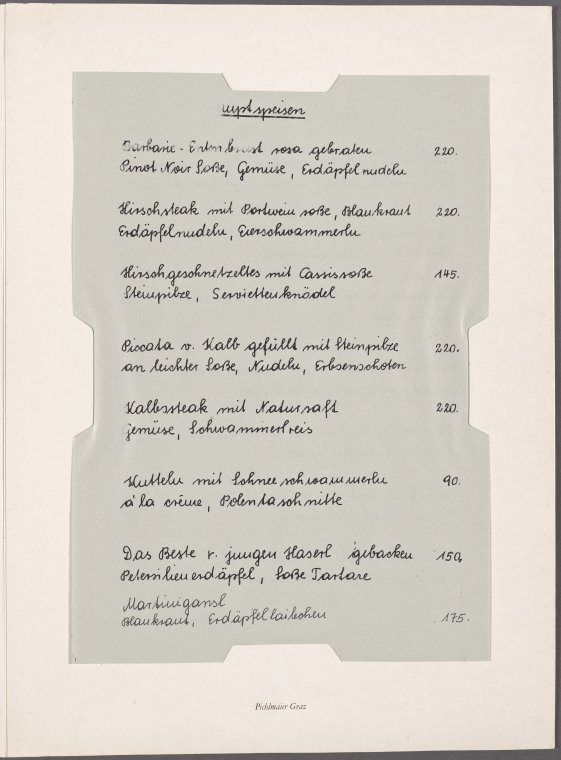 uptspeisen
Barbarie-Entenbrust rosa gebraten 220.
Pinot Noir Soße, Gemüse, Erdäpfelnudeln
Hirschsteak mit Portweinsoße, Blaukraut 220.
Erdäpfelnudeln, Eierschwammerln
Hirschgeschnetzeltes mit Cassissoße 145.
Steinpilze, Serviettenknödel
Piccata v. Kalb gefüllt mit Steinpilze 220.
an leichter Soße, Nudeln, Erbsenschoten
Kalbssteak mit Natursaft 220.
gemüse, Schwammerlreis
Kutteln mit Schneeschwammerln 90.
a'la créme, Polentaschnitte
Das Beste v. jungen Haserl gebacken 150,
Petersilienerdäpfel, Soße Tartare
Martinigansl
Blaukraut, Erdäpfellaibchen 175.
Pichlmaier Graz